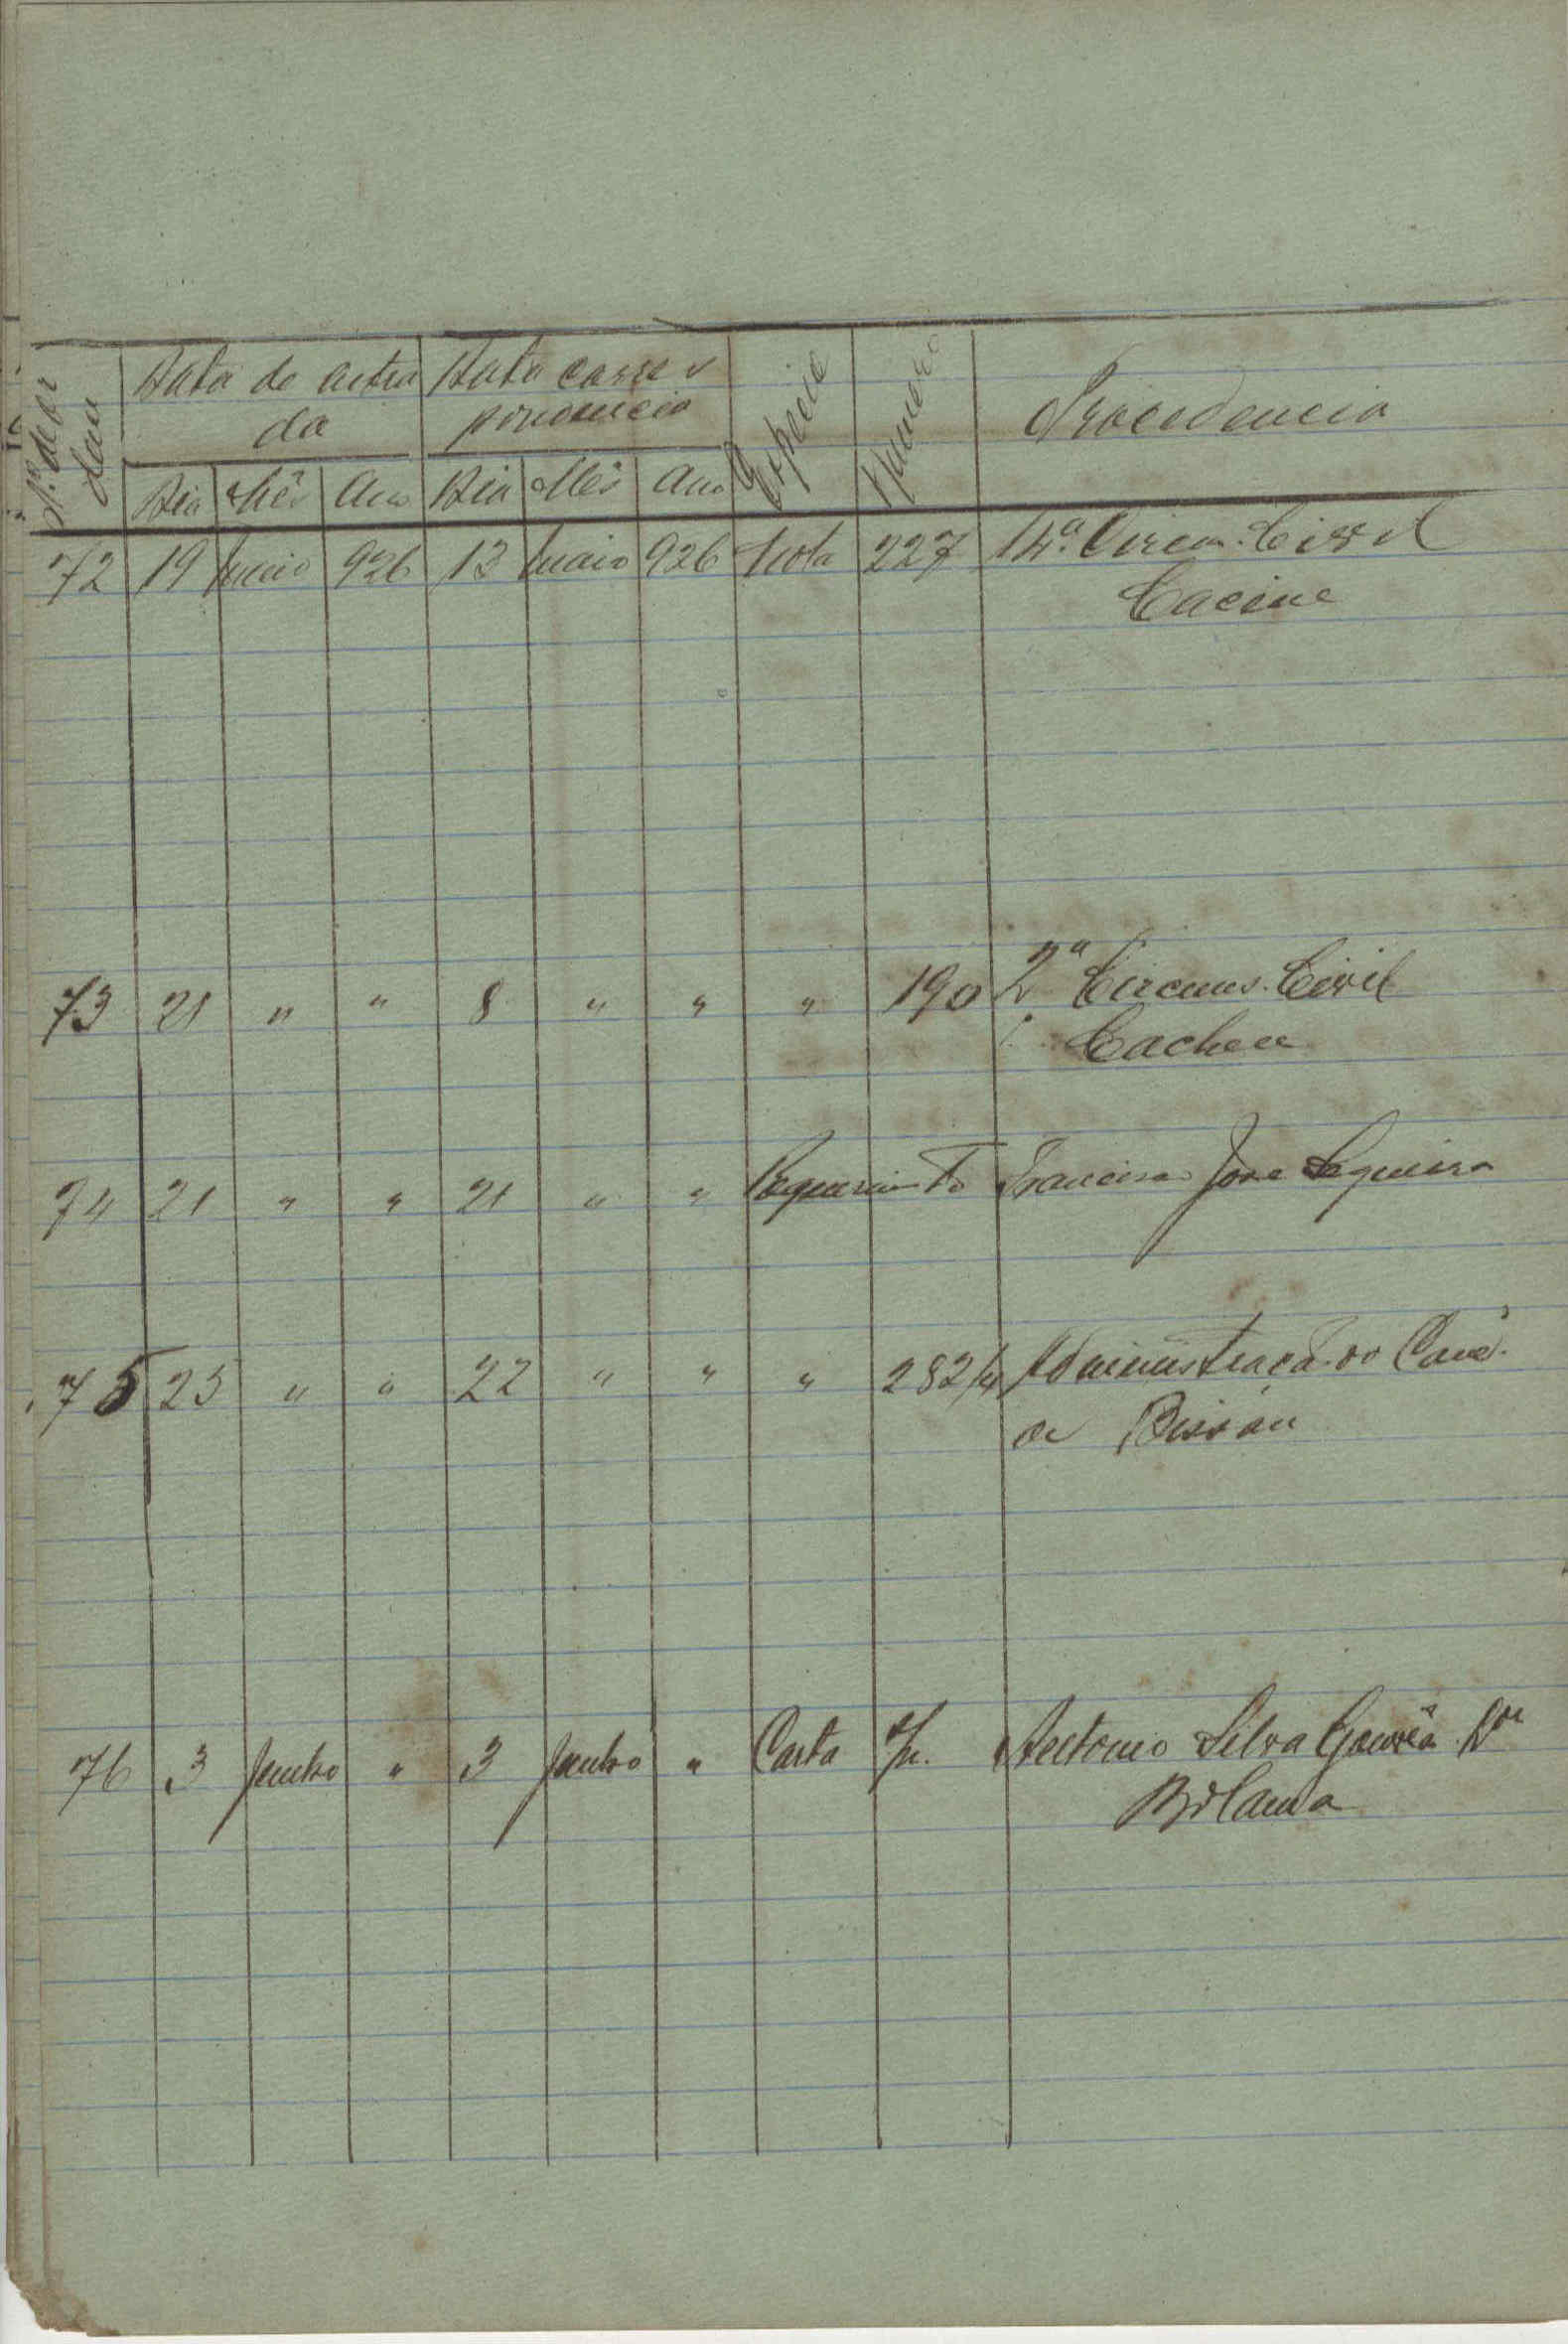 Nº de or
dem
Data de entra
da
Data corres
pondencia
Especie
Numero
Procedencia
Dia Mês Ano Dia Mês Ano
72 19 maio 926 13 maio 926 Nota 227 4ª Circun. Civil
Cacine
73 21 " " 8 " " " 190 2ª Circuns. Civil
Cacheu
74 21 " " 21 " " Requerimento Francisco Jose Sequeira
75 25 " " 22 " " " 282/4 Administraçã do Conc.
de Bissau
76 3 Junho " 3 Junho " Carta s/n. Antonio Silva Gouvêa
Bolama